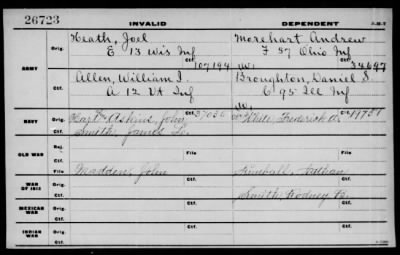 26723 INVALID DEPENDENT
ARMY
Orig. Heath, Joel Morehart, Andrew
E 13 Wis Inf F 37 Ohio Inf
Ctf. 107194 W. 34697
Allen, William I. Broughton, Daniel S.
A 12 Vt Inf C 95 Ill Inf
W.
NAVY
Orig. Askins, John White, Frederick A.
Ctf. Smith, James L.
OLD WAR
File File
Madden, John Kimball, Nathan
WAR OF 1812
Orig. Smith, Rodney B.
Ctf.
MEXICAN WAR
Orig.
Ctf. Ctf.
INDIAN WAR
Orig.
Ctf. Ctf.